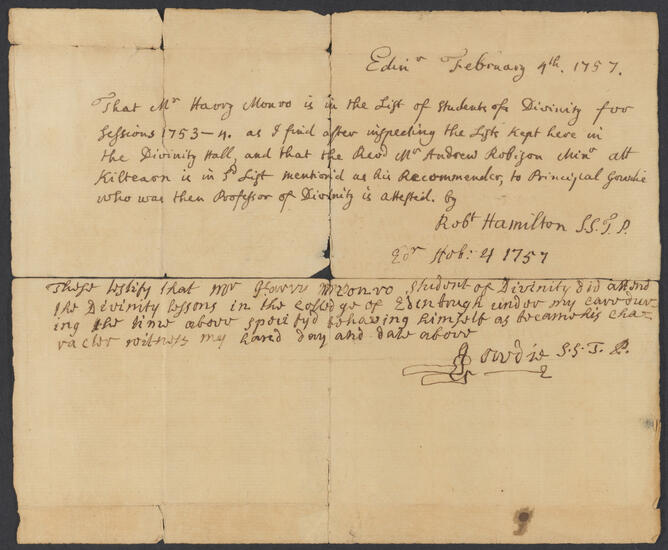 Edinr February 4th. 1757.
That Mr Harry Monro is in the List of Students of Divinity for
Sessions 1753-4. as I find after inspecting the Lists kept here in
the Divinity Hall, and that the Revd Mr Andrew Robison Minr att
Kiltearn is in sd List mention'd as his Recommender, to Principal Gowdie
who was then Professor of Divinity is attested. by
Robt Hamilton S.S.T.P.
Edr 4 1757
These testify that Mr Harry Monro student of Divinity did attend
the Divinity lessons in the Colledge of Edinbrugh under my care dur-
ing the time above specifyd behaving himself as became his cha-
racter witness my hand day and date above
J Gowdie S.S.T.P.